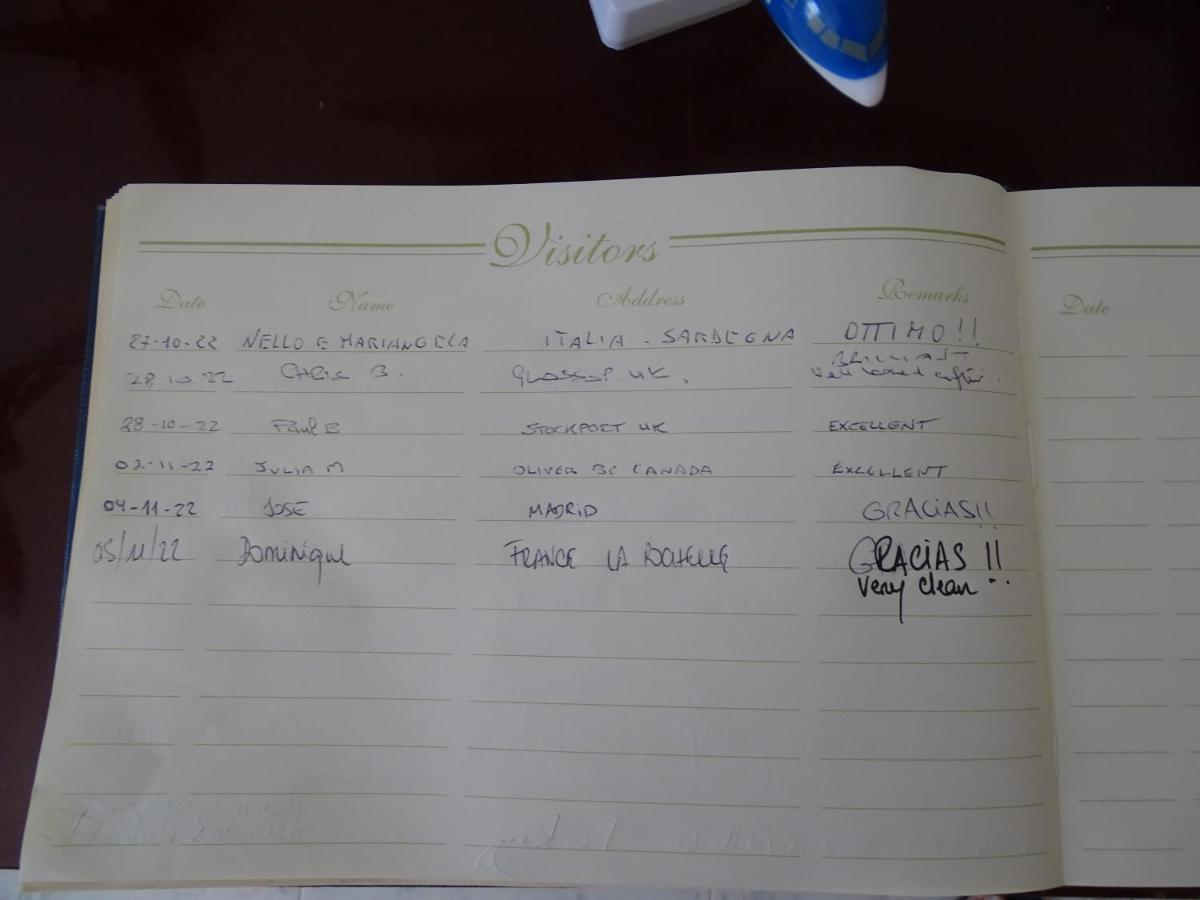 Visitors
Date Name Address Remarks
27-10-22 NELLO E MARIANGELA ITALIA - SARDEGNA OTTIMO!!
28 10.22 CHRIS B. GLOSSOP. UK. BRILLIANT
Well looked after.
28-10-22 Paul B STOCKPORT UK EXCELLENT
02-11-22 JULIA M OLIVER BC CANADA EXCELLENT
04-11-22 JOSE MADRID GRACIAS!!
05/11/22 Dominique FRANCE LA ROCHELLE GRACIAS !!
very clean !!
Date